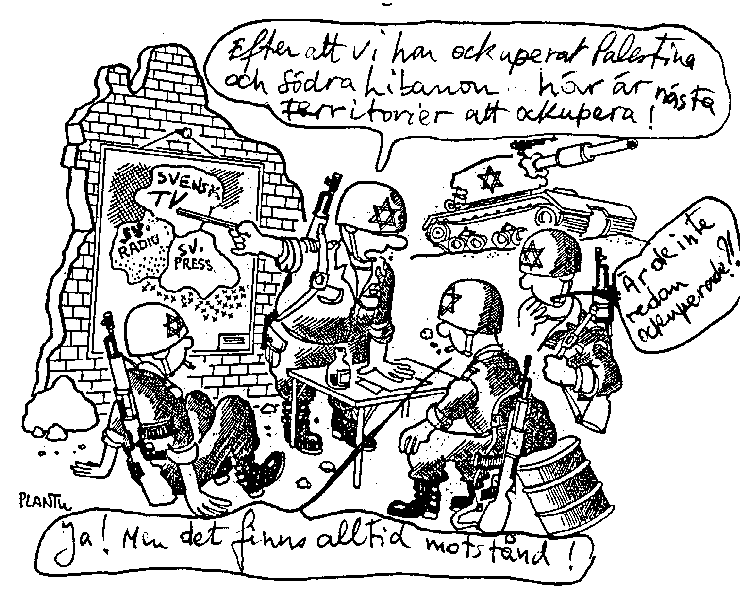 Efter att vi har ockuperat Palestina
och södra Libanon.. här är nästa
territorier att ockupera!
SVENSK
TV
SV.
RADIO
SV.
PRESS
Är de inte
redan
ockuperade?!
PLANTU
Ja! Men det finns alltid motstånd!